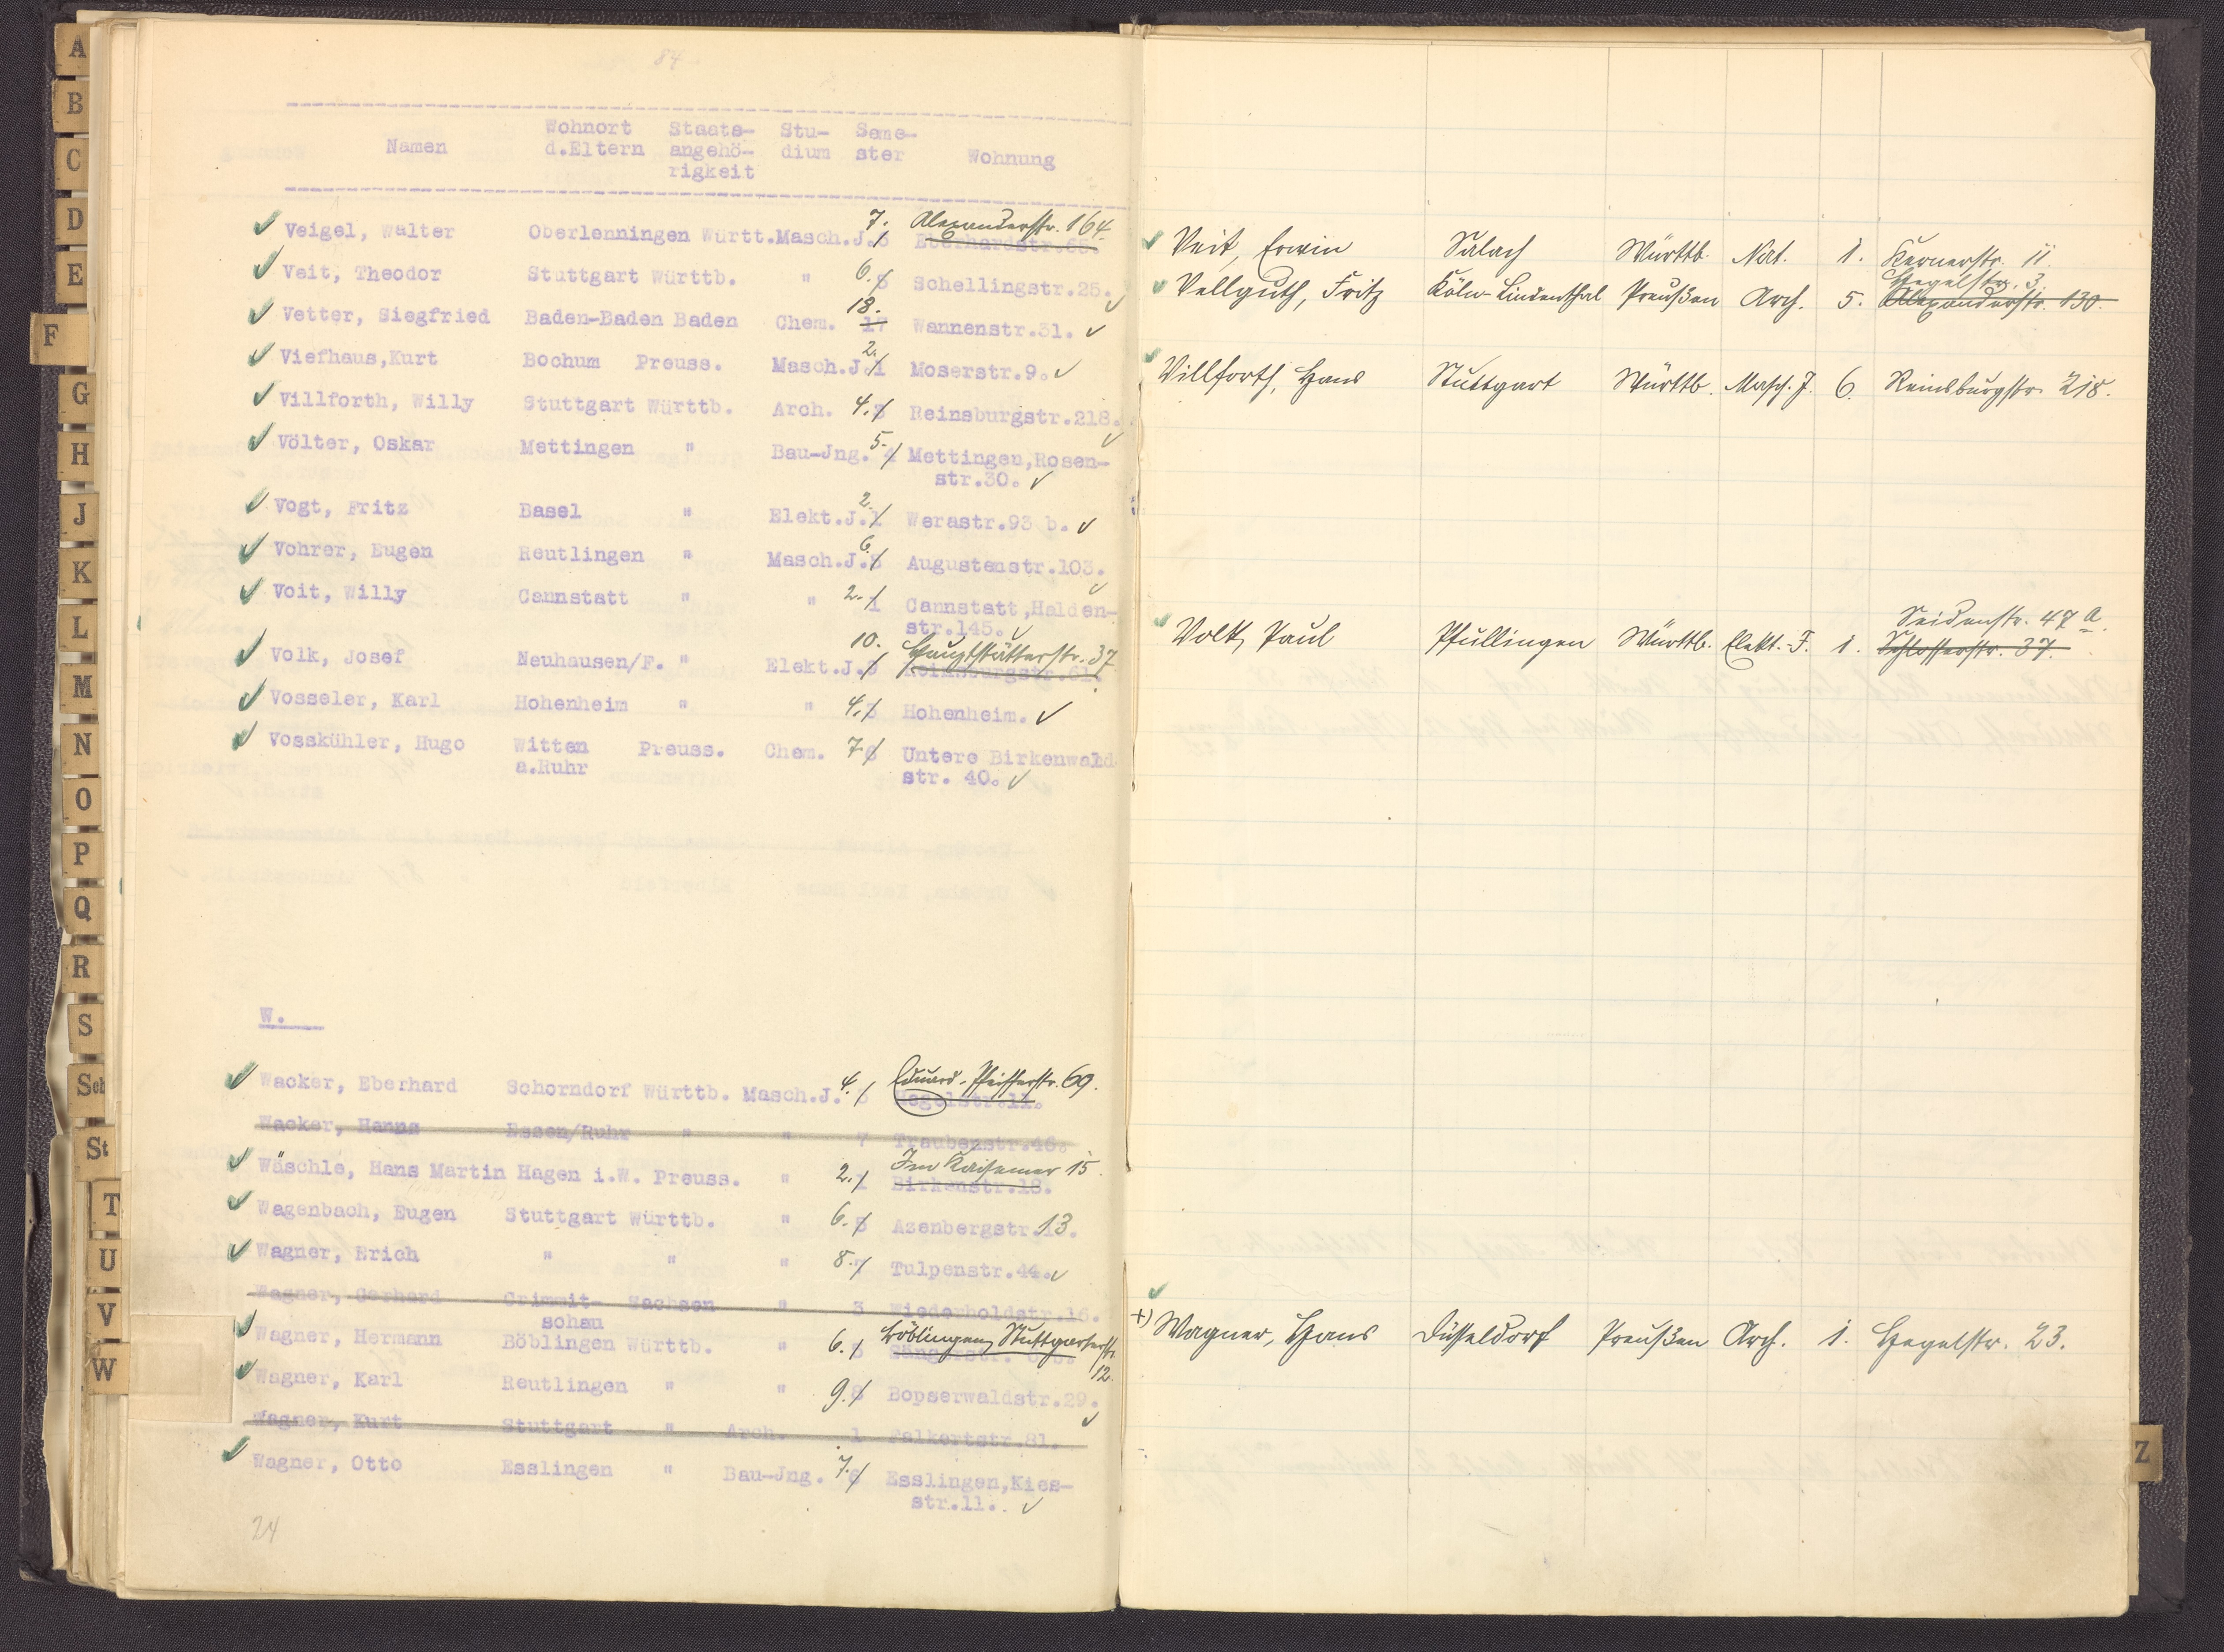 A
B
C
D
E
F
G
H
J
K
L
M
N
O
P
Q
R
S
Sch
St
T
U
V
W
84
Namen Wohnort d.Eltern Staats-angehö-rigkeit Stu-dium Seme-ster Wohnung
Veigel, Walter Oberlenningen Württ. Masch.J. 7. Alexanderstr. 164 Eberhardstr.65.
Veit, Theodor Stuttgart Württb. " 6. 5 Schellingstr.25.
Vetter, Siegfried Baden-Baden Baden Chem. 18. 17 Wannenstr.31.
Viefhaus,Kurt Bochum Preuss. Masch.J. 2. 1 Moserstr.9.
Villforth, Willy Stuttgart Württb. Arch. 4. 3 Reinsburgstr.218.
Völter, Oskar Mettingen " Bau-Jng. 5. 4 Mettingen,Rosen-
str.30.
Vogt, Fritz Basel " Elekt.J. 2. 1 Werastr.93 b.
Vohrer, Eugen Reutlingen " Masch.J. 6. 5 Augustenstr.103.
Voit, Willy Cannstatt " " 2. 1 Cannstatt,Halden-
str.145.
Volk, Josef Neuhausen/F. " Elekt.J. 10. Hauptstätterstr. 37 Reinsburgstr.61.
Vosseler, Karl Hohenheim " " 4. 3 Hohenheim.
Vosskühler, Hugo Witten Preuss. Chem. 7 6 Untere Birkenwald
a.Ruhr str. 40.
W.
Wacker, Eberhard Schorndorf Württb. Masch.J. 4. 3 Eduard-Pfeifferstr. 69. Hegelstr.11.
Wacker, Hanns Essen/Ruhr " " 7 Traubenstr.46.
Wäschle, Hans Martin Hagen i.W. Preuss. " 2. 1 Im Kaisemer 15 Birkenstr.18.
Wagenbach, Eugen Stuttgart Württb. " 6. 5 Azenbergstr.13.
Wagner, Erich " " " 8. 7 Tulpenstr.44.
Wagner, Gerhard Crimmit- Sachsen " 3 Wiederholdstr.16.
schau
Wagner, Hermann Böblingen Württb. " 6. 5 Böblingen, Stuttgarterstr. 12. Sängerstr.
Wagner, Karl Reutlingen " " 9. 8 Bopserwaldstr.29.
Wagner, Kurt Stuttgart " Arch. 1 Falkertstr.81.
Wagner, Otto Esslingen " Bau-Jng. 7. 6 Esslingen,Kies-
str.11.
24
Veit, Erwin Salach Württb. Nat. 1. Kernerstr. 11.
Hegelstr. 3.
Vellguth, Fritz Köln-Lindenthal Preußen Arch. 5. Alexanderstr. 130.
Villforth, Hans Stuttgart Württb. Masch. J. 6. Reinsburgstr. 218.
Seidenstr. 47 a.
Volk, Paul Pfullingen Württb. Elekt.-J. 1. Schlosserstr. 37.
+) Wagner, Hans Düsseldorf Preußen Arch. 1. Hegelstr. 23.
Z